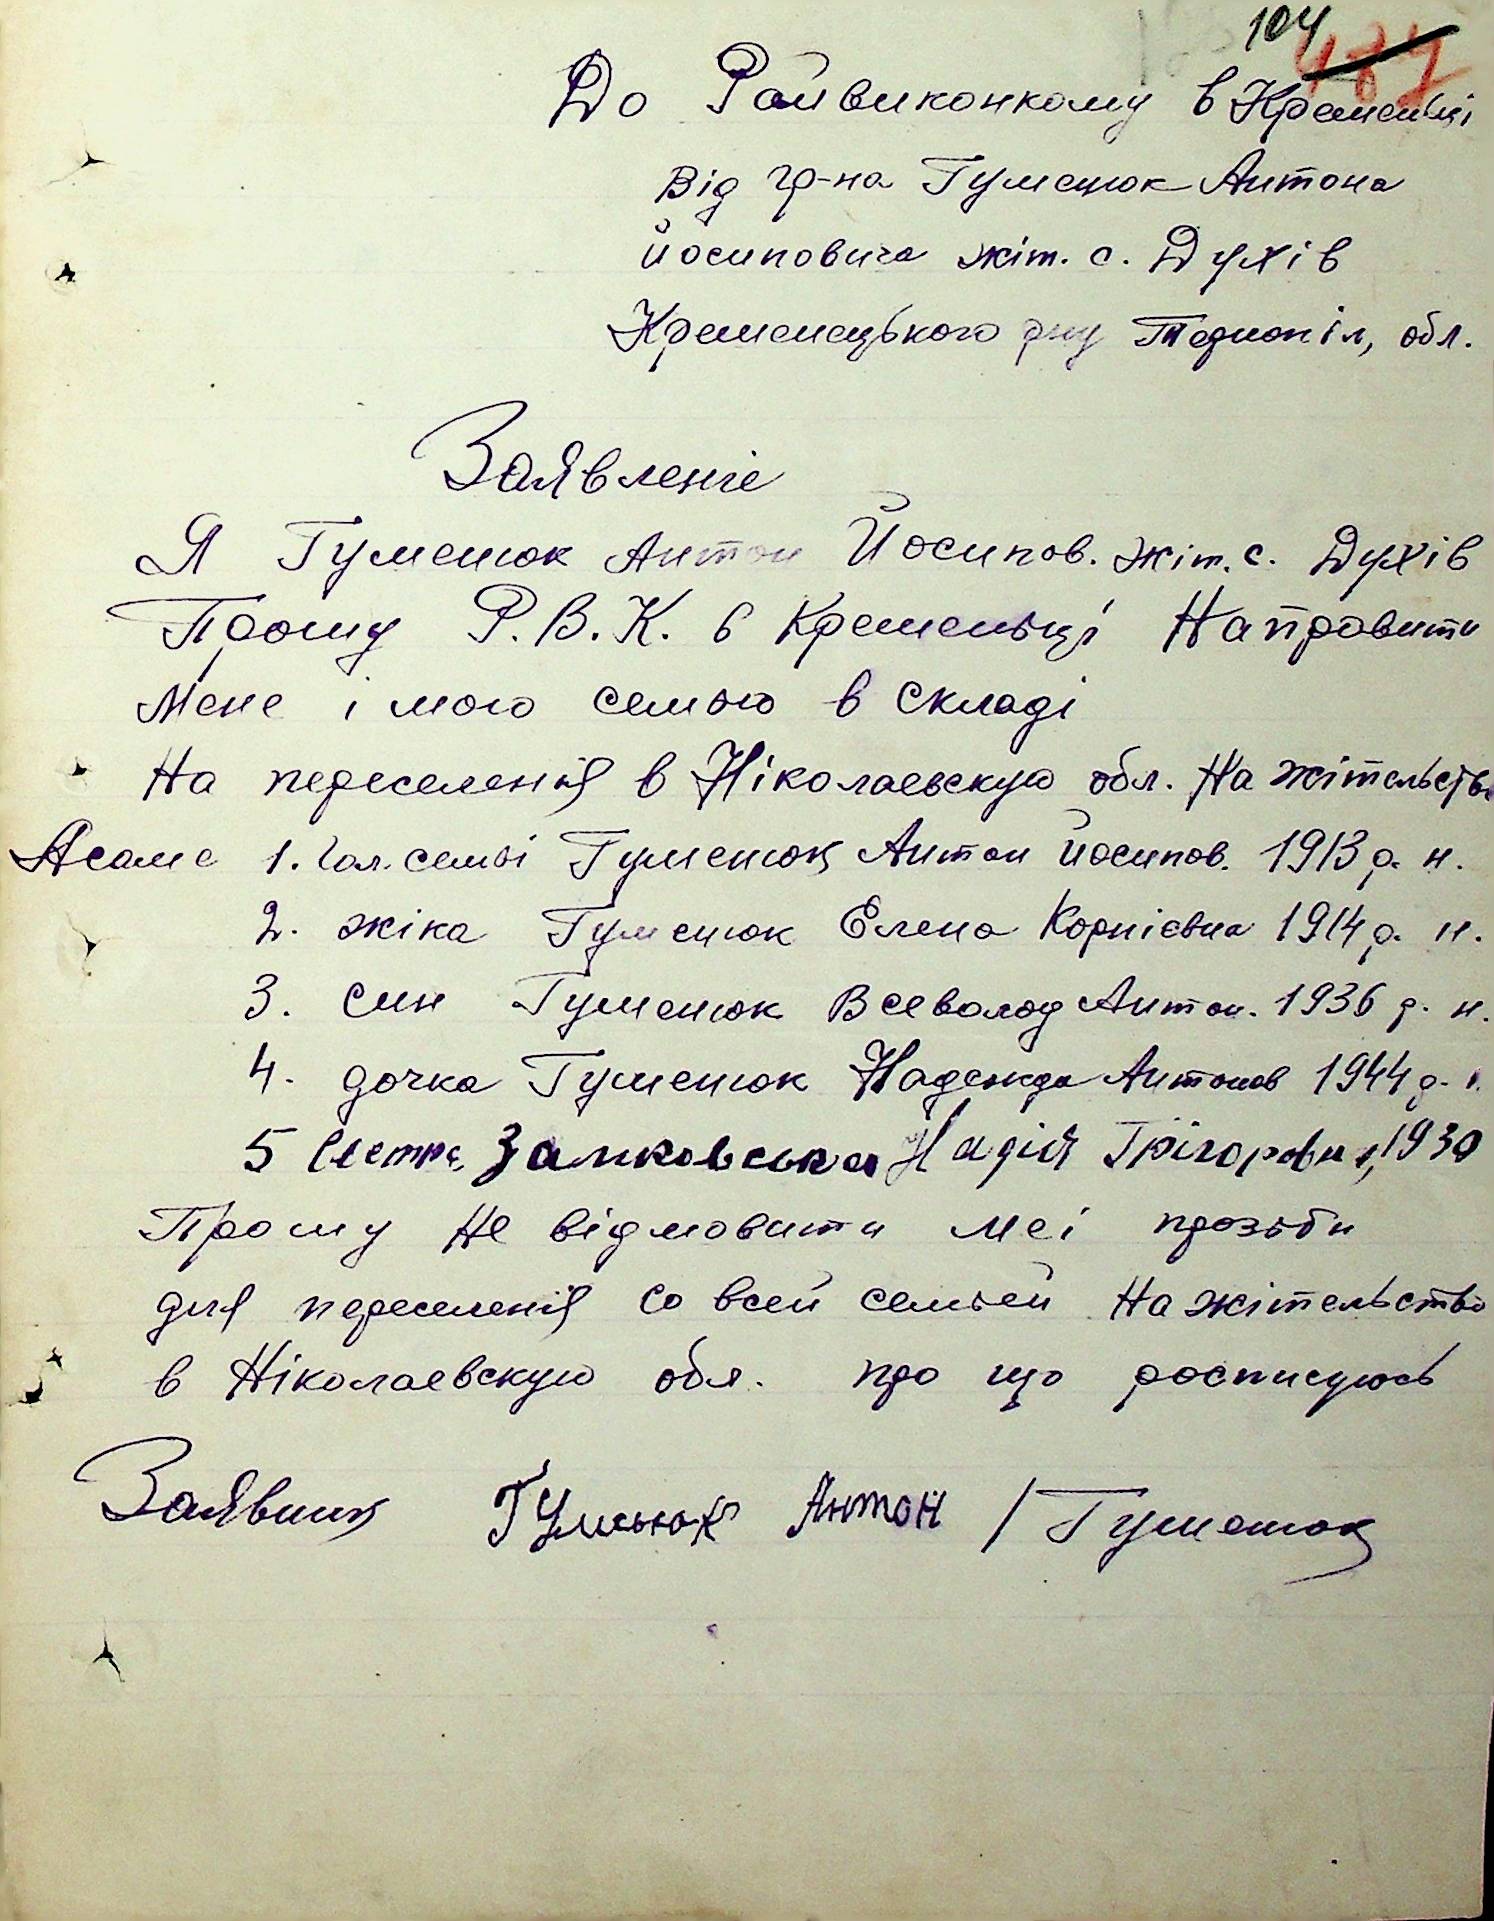 104
487
До Райвиконкому в Кременьці
Від гр-на Гуменюк Антона
Йосиповича жіт. с. Духів
Кременецького р-ну Тернопіл, обл.
Заявленіе
Я Гуменюк Антон Йосипов. жіт. с. Духів
Прошу Р.В.К. в Кременьці Направити
Мене і мою семью в складі
На переселенія в Ніколаевскую обл. На жітельство
Асаме 1. Гол. семьі Гуменюк Антон Йосипов. 1913 р. н.
2. жінка Гуменюк Елена Корнієвна 1914 р. н.
3. син Гуменюк Всеволод Антон. 1936 р. н.
4. дочка Гуменюк Надежда Антонов 1944 р. н.
5 Сестра Замковська Надія Грігоровна, 1930
Прошу не відмовити меі прозьби
для переселенія со всей семьей На жітельство
в Ніколаевскую обл. про що росписуюсь
Заявник Гуменюк Антон / Гуменюк